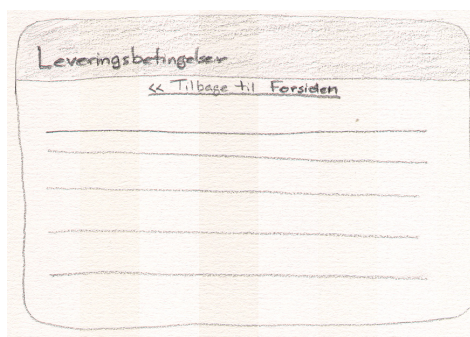 Leveringsbetingelser
<< Tilbage til Forsiden